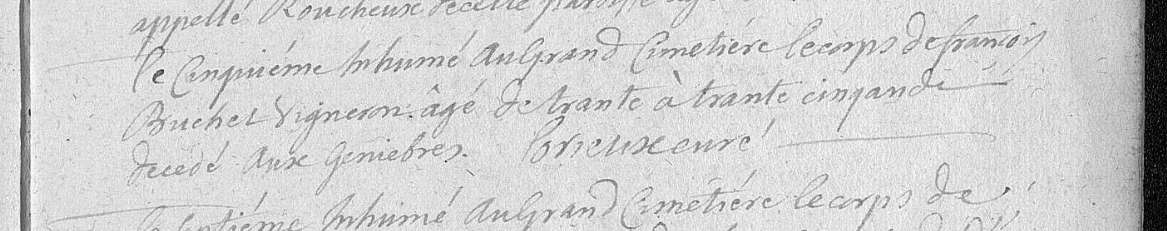 appellé Roucheux decette paroisse
le Cinquiéme Inhumé AuGrand Cimetiére lecorps defrançois
Buchet Vigneron. âgé de trante à trante cinqande
decedé Aux Geniebres. Lorieux curé
le septiéme Inhumé AuGrand Cimétiére lecorps de